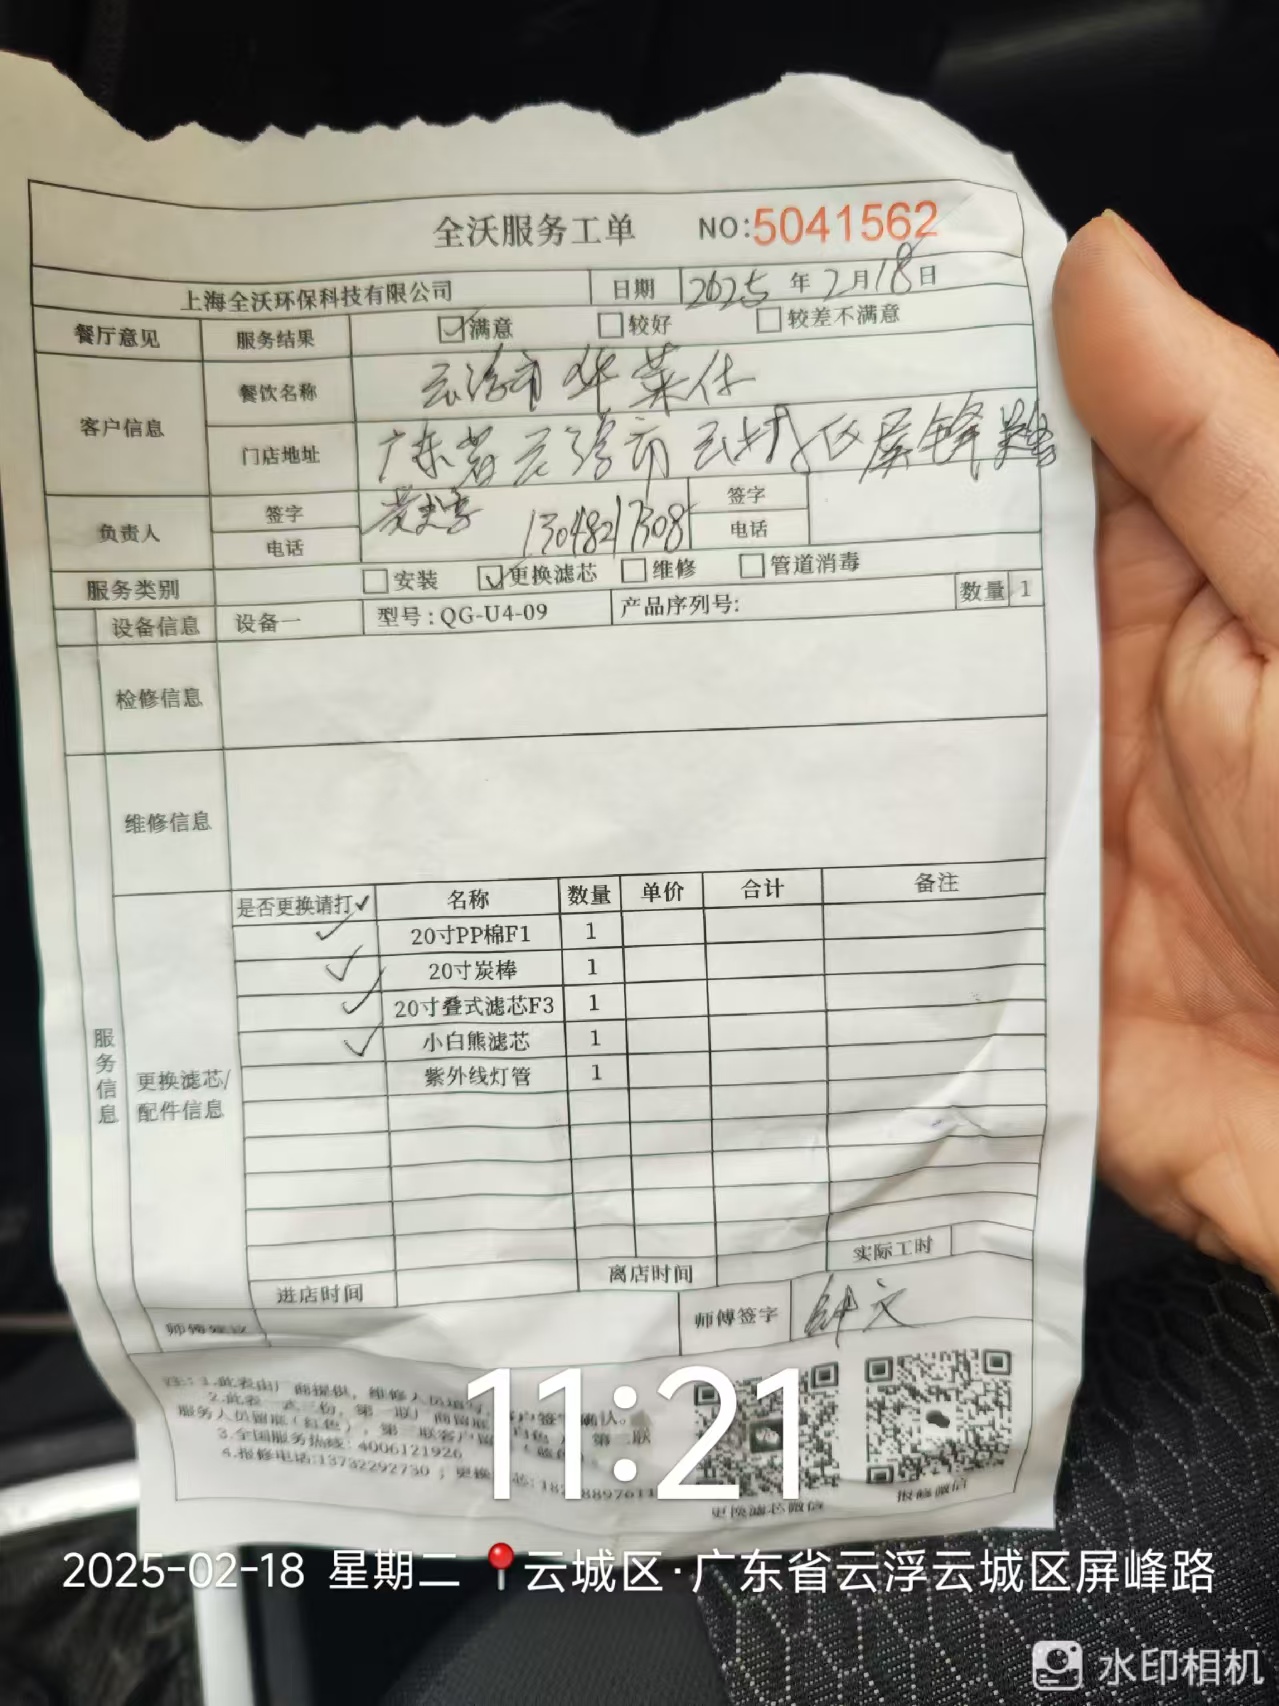 全沃服务工单 NO:5041562
上海全沃环保科技有限公司 日期 2025 年 2月18日
餐厅意见 服务结果 满意 较好 较差不满意
客户信息 餐饮名称 云浮市华莱仕
门店地址 广东省云浮市云城区屏锋路
负责人 签字 签字
电话 13048217308 电话
服务类别 安装 ✓更换滤芯 维修 管道消毒
设备信息 设备一 型号:QG-U4-09 产品序列号: 数量 1
检修信息
维修信息
服务信息
更换滤芯/
配件信息
是否更换请打✓ 名称 数量 单价 合计 备注
✓ 20寸PP棉F1 1
✓ 20寸炭棒 1
✓ 20寸叠式滤芯F3 1
✓ 小白熊滤芯 1
紫外线灯管 1
实际工时
进店时间 离店时间
师傅建议 师傅签字 钟文
注:1.此表由厂商提供,维修人员填写,客户签字确认。
2.此表一式三份,第一联厂商留底 第二联
服务人员留底(红色),第三联客户留
3.全国服务热线:4006121926
4.报修电话:13732292730;更换
更换滤芯微信 报修微信
11:21
2025-02-18 星期二 云城区·广东省云浮云城区屏峰路
水印相机